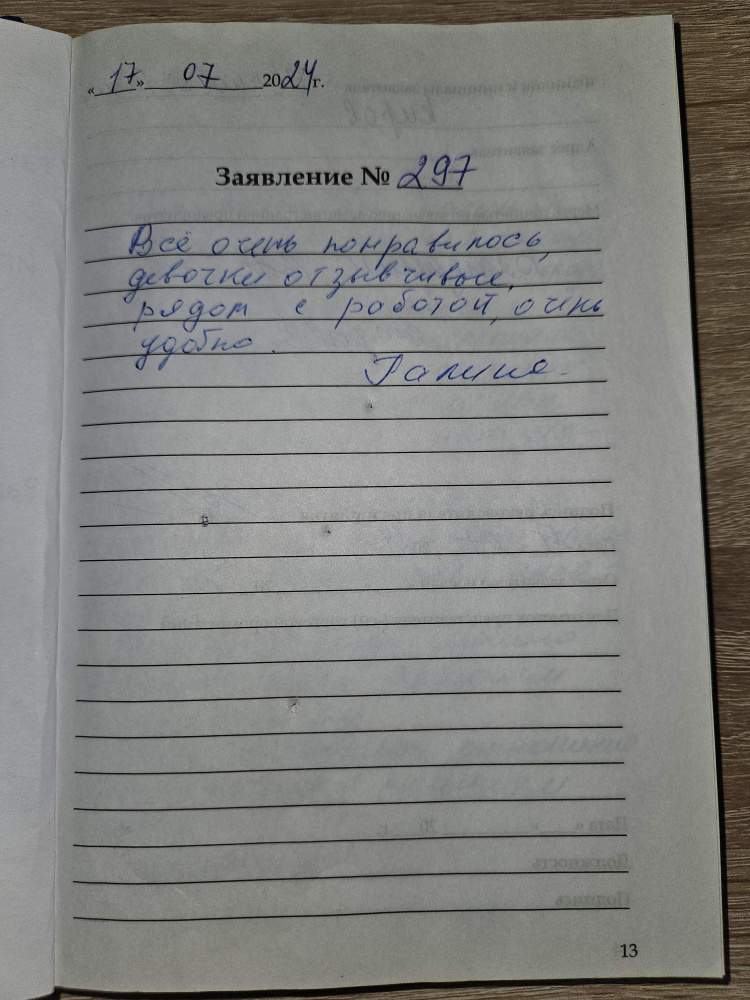 «17» 07 2024г.
Заявление № 297
Всё очень понравилось,
девочки отзывчивые,
рядом с работой, очень
удобно.
Галина.
13